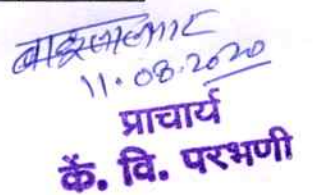 11.08.2020
प्राचार्य
कें. वि. परभणी